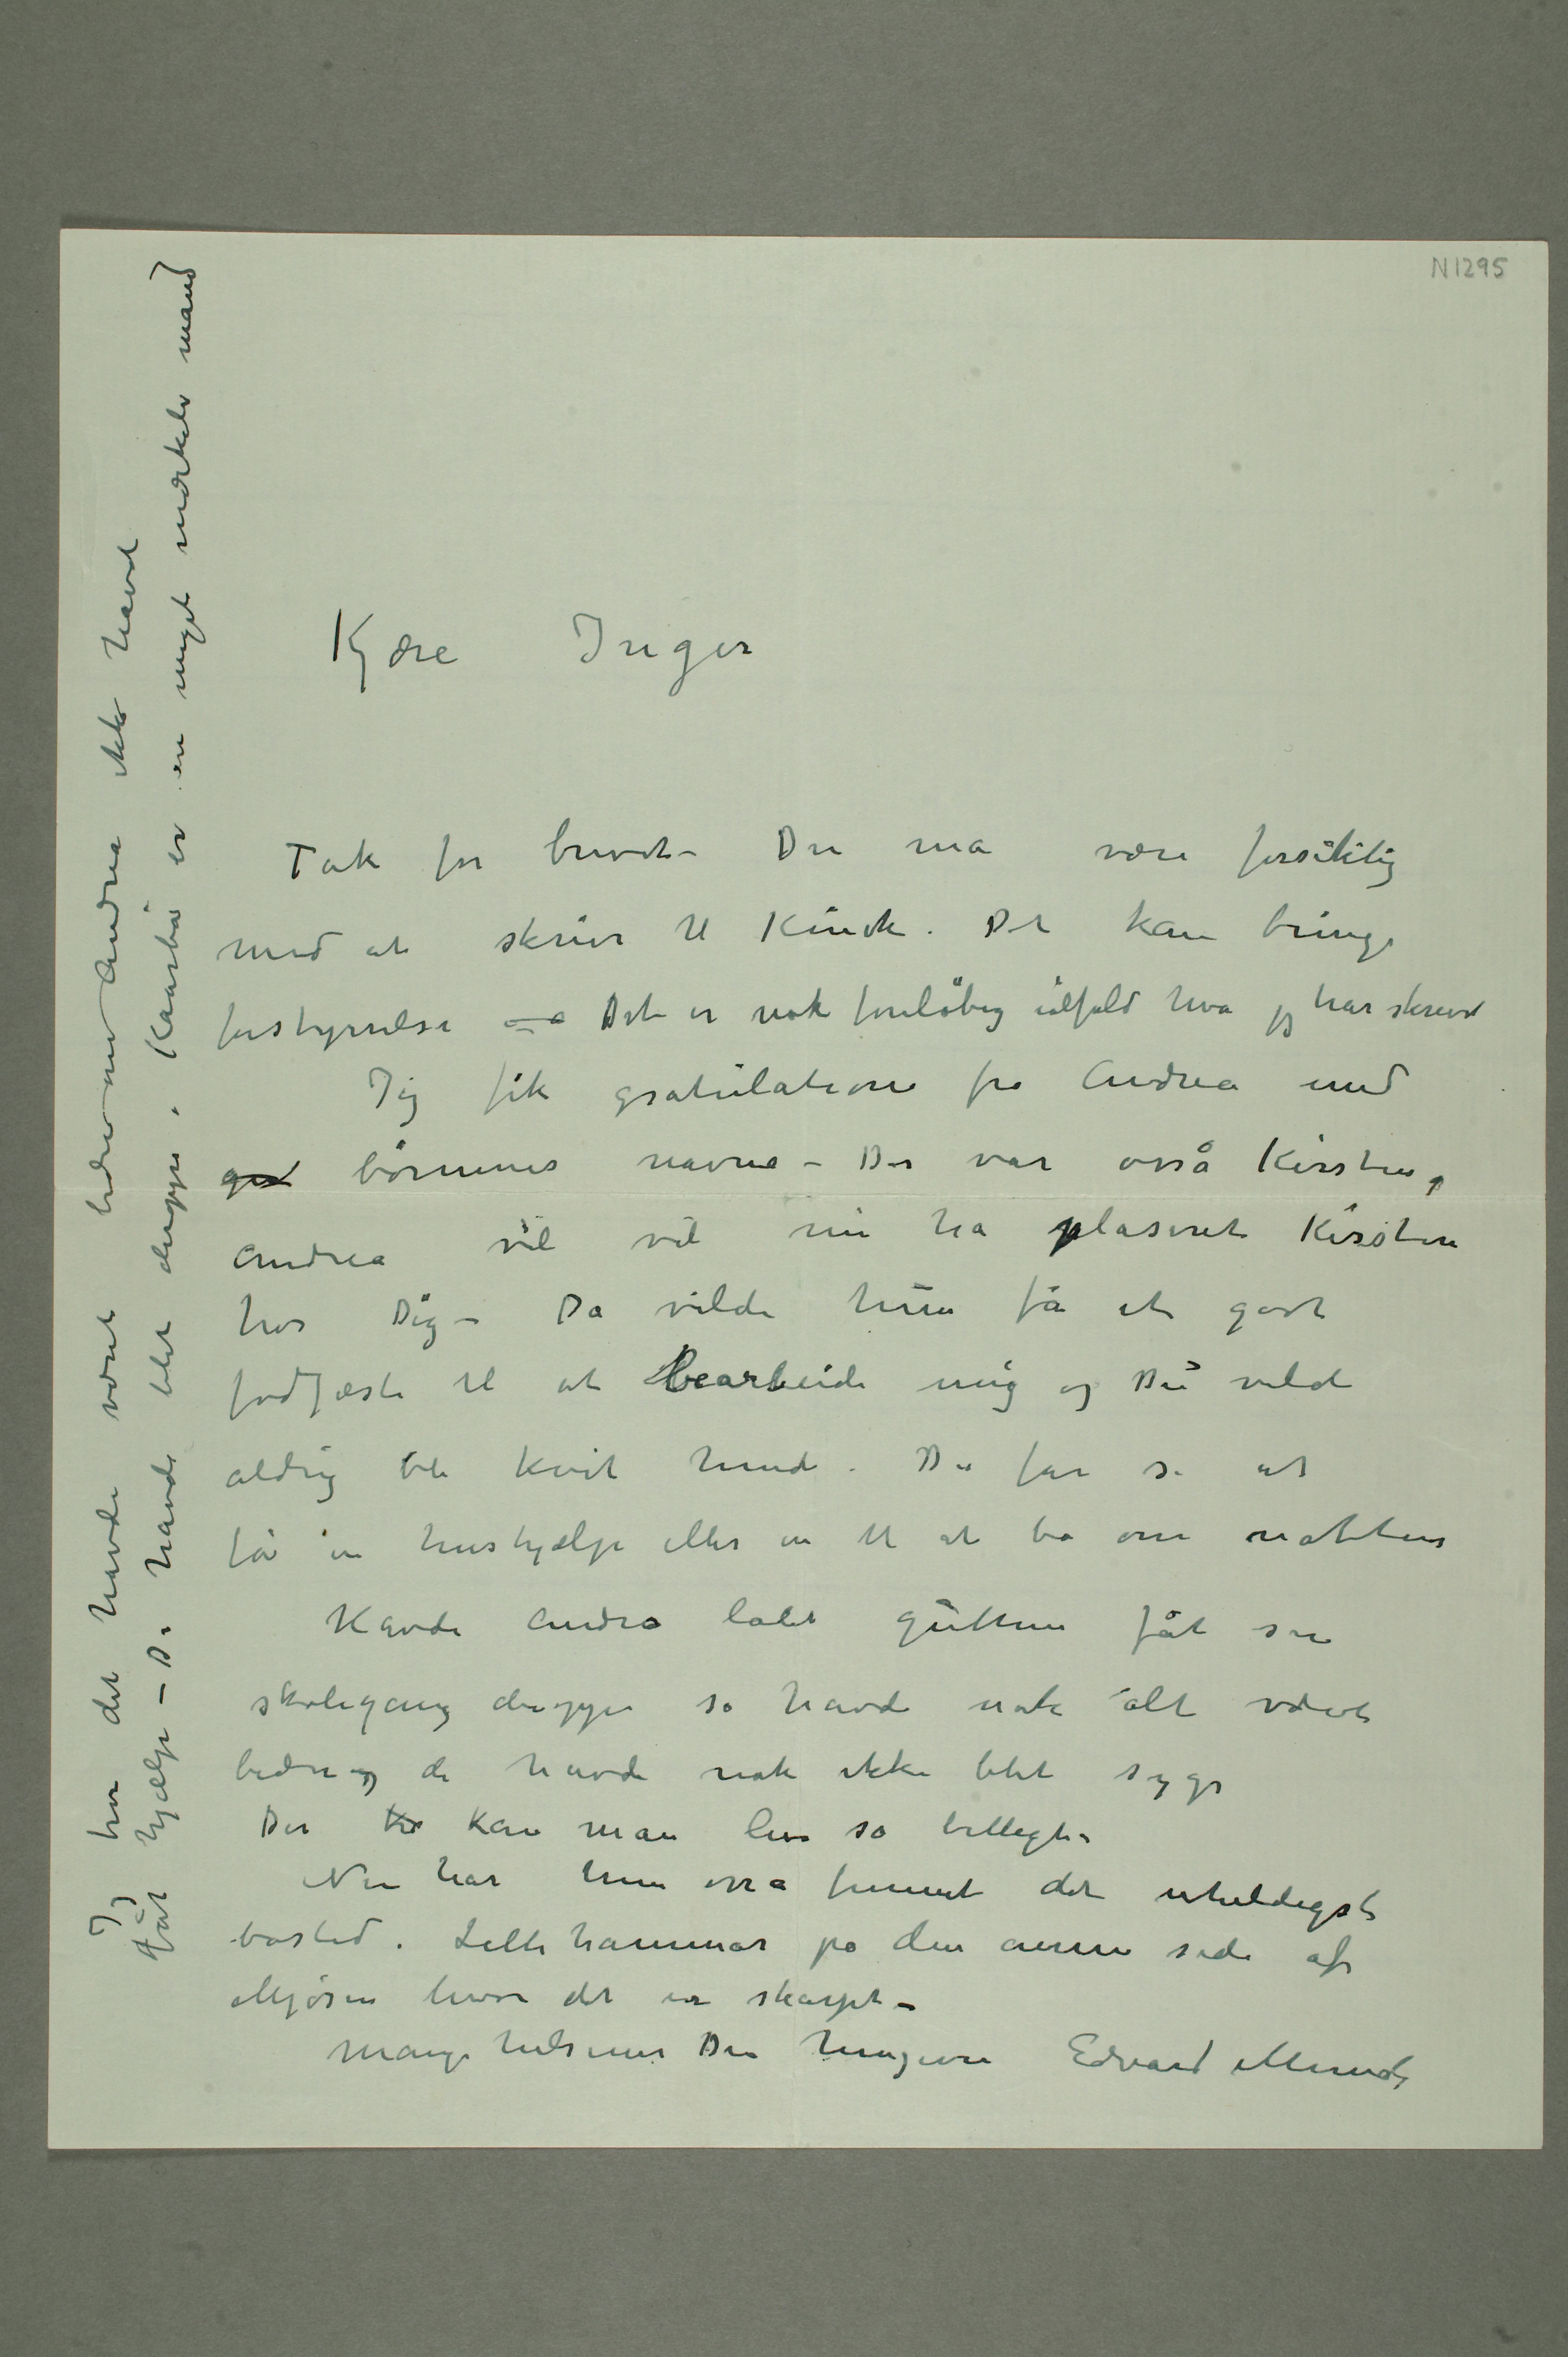 N 1295
Kjære Inger
Tak for brevet – Du må være forsiktig
med at skrive til Kinck. Det kan bringe
forstyrrelse – Det er nok foreløbig ialfald hva jeg har skrevet
Jeg fik gratulation fra Andrea med
børnenes navne – Der var osså Kirsten,
Andrea vil vel nu ha plaseret Kirsten
hos Dig – Da vilde hun få et godt
fodfæste til at bearbeide mig og Du vilde
aldrig bli kvit hende. Du får se at
få en hushjælp eller en til at bo om natten
Havde Andrea ladet gutten fåt sin
skolegang deroppe så havde nok alt været
bedre og de havde nok ikke blet syge
Der kan man leve så billigt –
Nu har hun osså funnet det uheldigste
bosted. Lillehammer på den anne side af
Mjøsen hvor det er skarpt –
Mange hilsener Din hengivne Edvard Munch
Jeg tror det havde været bedre om Andrea ikke havde
fåt hjælp – De havde blet deroppe. Kaarbø er en meget mærkelig mand